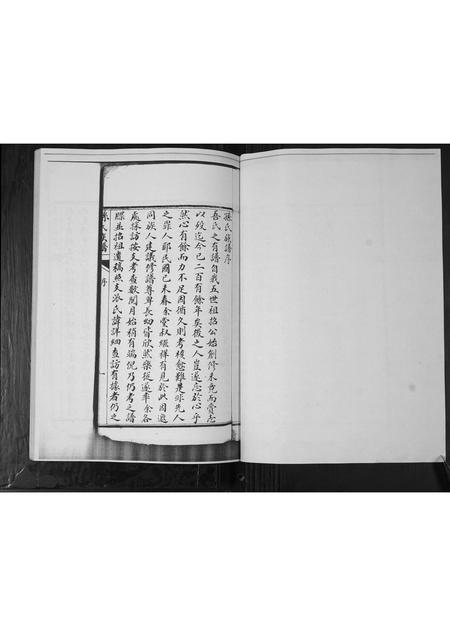 孫氏族譜序
吾氏之有譜自我五世祖招公始創修未竟而賫志
以歿迄今已二百有餘年矣後之人豈遂忘於心乎
然心有餘而力不足因循久則考核愈難是非先人
之罪人耶民國己未春余堂叔繼祥有見於此因邀
同族人建議修譜尊卑長幼皆欣然樂從遂率余各
處採訪按支考查數閱月始稍有端倪乃仍考之譜
牒並招祖遺稿照支派氏諱詳細查訪有據者仍之
孫氏族譜 序 一